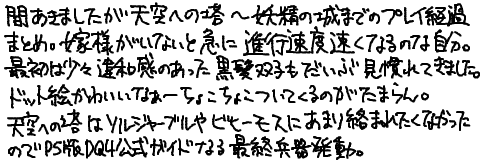 間あきましたが天空への塔～妖精の城までのプレイ経過
まとめ。嫁様がいないと急に進行速度速くなるのな自分。
最初は少々違和感のあった黒髪双子もだいぶ見慣れてきました。
ドット絵かわいいなぁーちょこちょこついてくるのがたまらん。
天空への塔はソルジャーブルやビヒーモスにあまり絡まれたくなかった
のでPS版DQ4公式ガイドなる最終兵器発動。